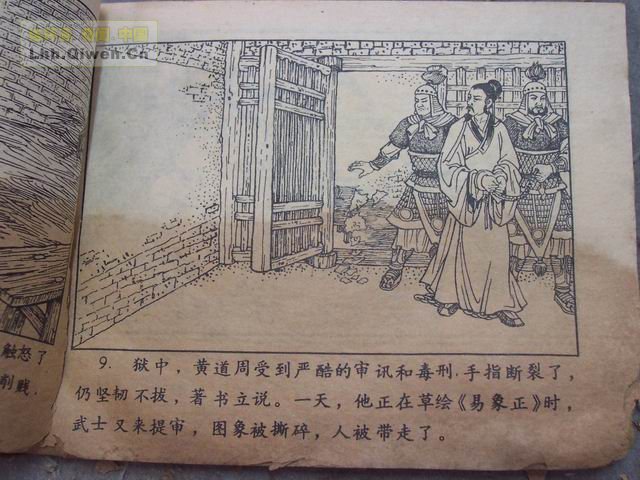 Lhh.Qiweh.Cn
触怒了
削贱.
9. 狱中，黄道周受到严酷的审讯和毒刑.手指断裂了，
仍坚韧不拔，著书立说。一天，他正在草绘《易象正》时，
武士又来提审，图象被撕碎，人被带走了。